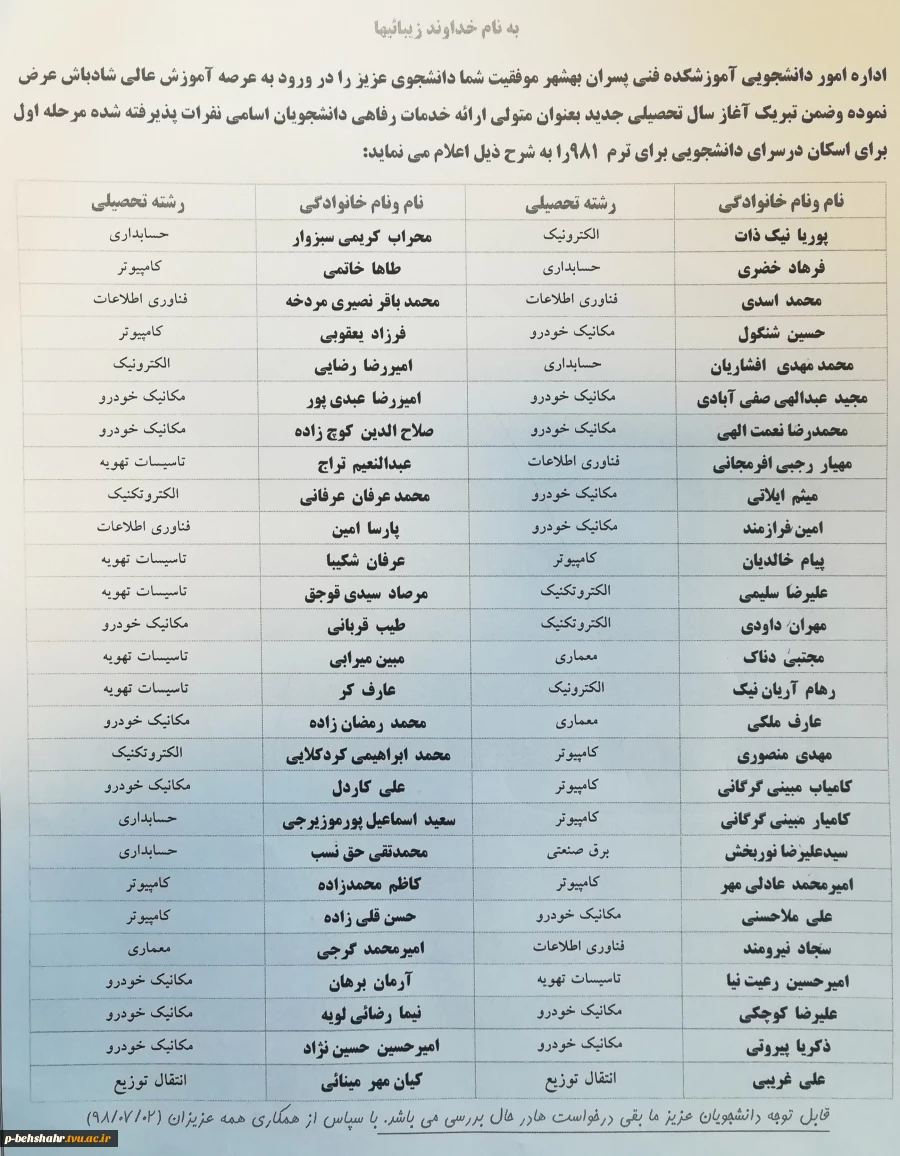 به نام خداوند زیبائیها
اداره امور دانشجویی آموزشکده فنی پسران بهشهر موفقیت شما دانشجوی عزیز را در ورود به عرصه آموزش عالی شادباش عرض
نموده وضمن تبریک آغاز سال تحصیلی جدید بعنوان متولی ارائه خدمات رفاهی دانشجویان اسامی نفرات پذیرفته شده مرحله اول
برای اسکان درسرای دانشجویی برای ترم ۹۸۱را به شرح ذیل اعلام می نماید:
نام ونام خانوادگی رشته تحصیلی نام ونام خانوادگی رشته تحصیلی
پوریا نیک ذات الکترونیک محراب کریمی سبزوار حسابداری
فرهاد خضری حسابداری طاها خاتمی کامپیوتر
محمد اسدی فناوری اطلاعات محمد باقر نصیری مردخه فناوری اطلاعات
حسین شنگول مکانیک خودرو فرزاد یعقوبی کامپیوتر
محمد مهدی افشاریان حسابداری امیررضا رضایی الکترونیک
مجید عبدالهی صفی آبادی مکانیک خودرو امیررضا عبدی پور مکانیک خودرو
محمدرضا نعمت الهی مکانیک خودرو صلاح الدین کوچ زاده مکانیک خودرو
مهیار رجبی افرمجانی فناوری اطلاعات عبدالنعیم تراج تاسیسات تهویه
میثم ایلاتی مکانیک خودرو محمد عرفان عرفانی الکتروتکنیک
امین فرازمند مکانیک خودرو پارسا امین فناوری اطلاعات
پیام خالدیان کامپیوتر عرفان شکیبا تاسیسات تهویه
علیرضا سلیمی الکتروتکنیک مرصاد سیدی قوجق تاسیسات تهویه
مهران داودی الکتروتکنیک طیب قربانی مکانیک خودرو
مجتبی دناک معماری مبین میرابی تاسیسات تهویه
رهام آریان نیک الکترونیک عارف کر تاسیسات تهویه
عارف ملکی معماری محمد رمضان زاده مکانیک خودرو
مهدی منصوری کامپیوتر محمد ابراهیمی کردکلایی الکتروتکنیک
کامیاب مبینی گرگانی کامپیوتر علی کاردل مکانیک خودرو
کامیار مبینی گرگانی کامپیوتر سعید اسماعیل پورموزیرجی حسابداری
سیدعلیرضا نوربخش برق صنعتی محمدتقی حق نسب حسابداری
امیرمحمد عادلی مهر کامپیوتر کاظم محمدزاده کامپیوتر
علی ملاحسنی مکانیک خودرو حسن قلی زاده کامپیوتر
سجاد نیرومند فناوری اطلاعات امیرمحمد گرجی معماری
امیرحسین رعیت نیا تاسیسات تهویه آرمان برهان مکانیک خودرو
علیرضا کوچکی مکانیک خودرو نیما رضائی لویه مکانیک خودرو
ذکریا پیروتی مکانیک خودرو امیرحسین حسین نژاد مکانیک خودرو
علی غریبی انتقال توزیع کیان مهر مینائی انتقال توزیع
قابل توجه دانشجویان عزیز ما بقی درخواست هادر حال بررسی می باشد. با سپاس از همکاری همه عزیزان (۹۸/۰۷/۰۲)
p-behshahr.tvu.ac.ir